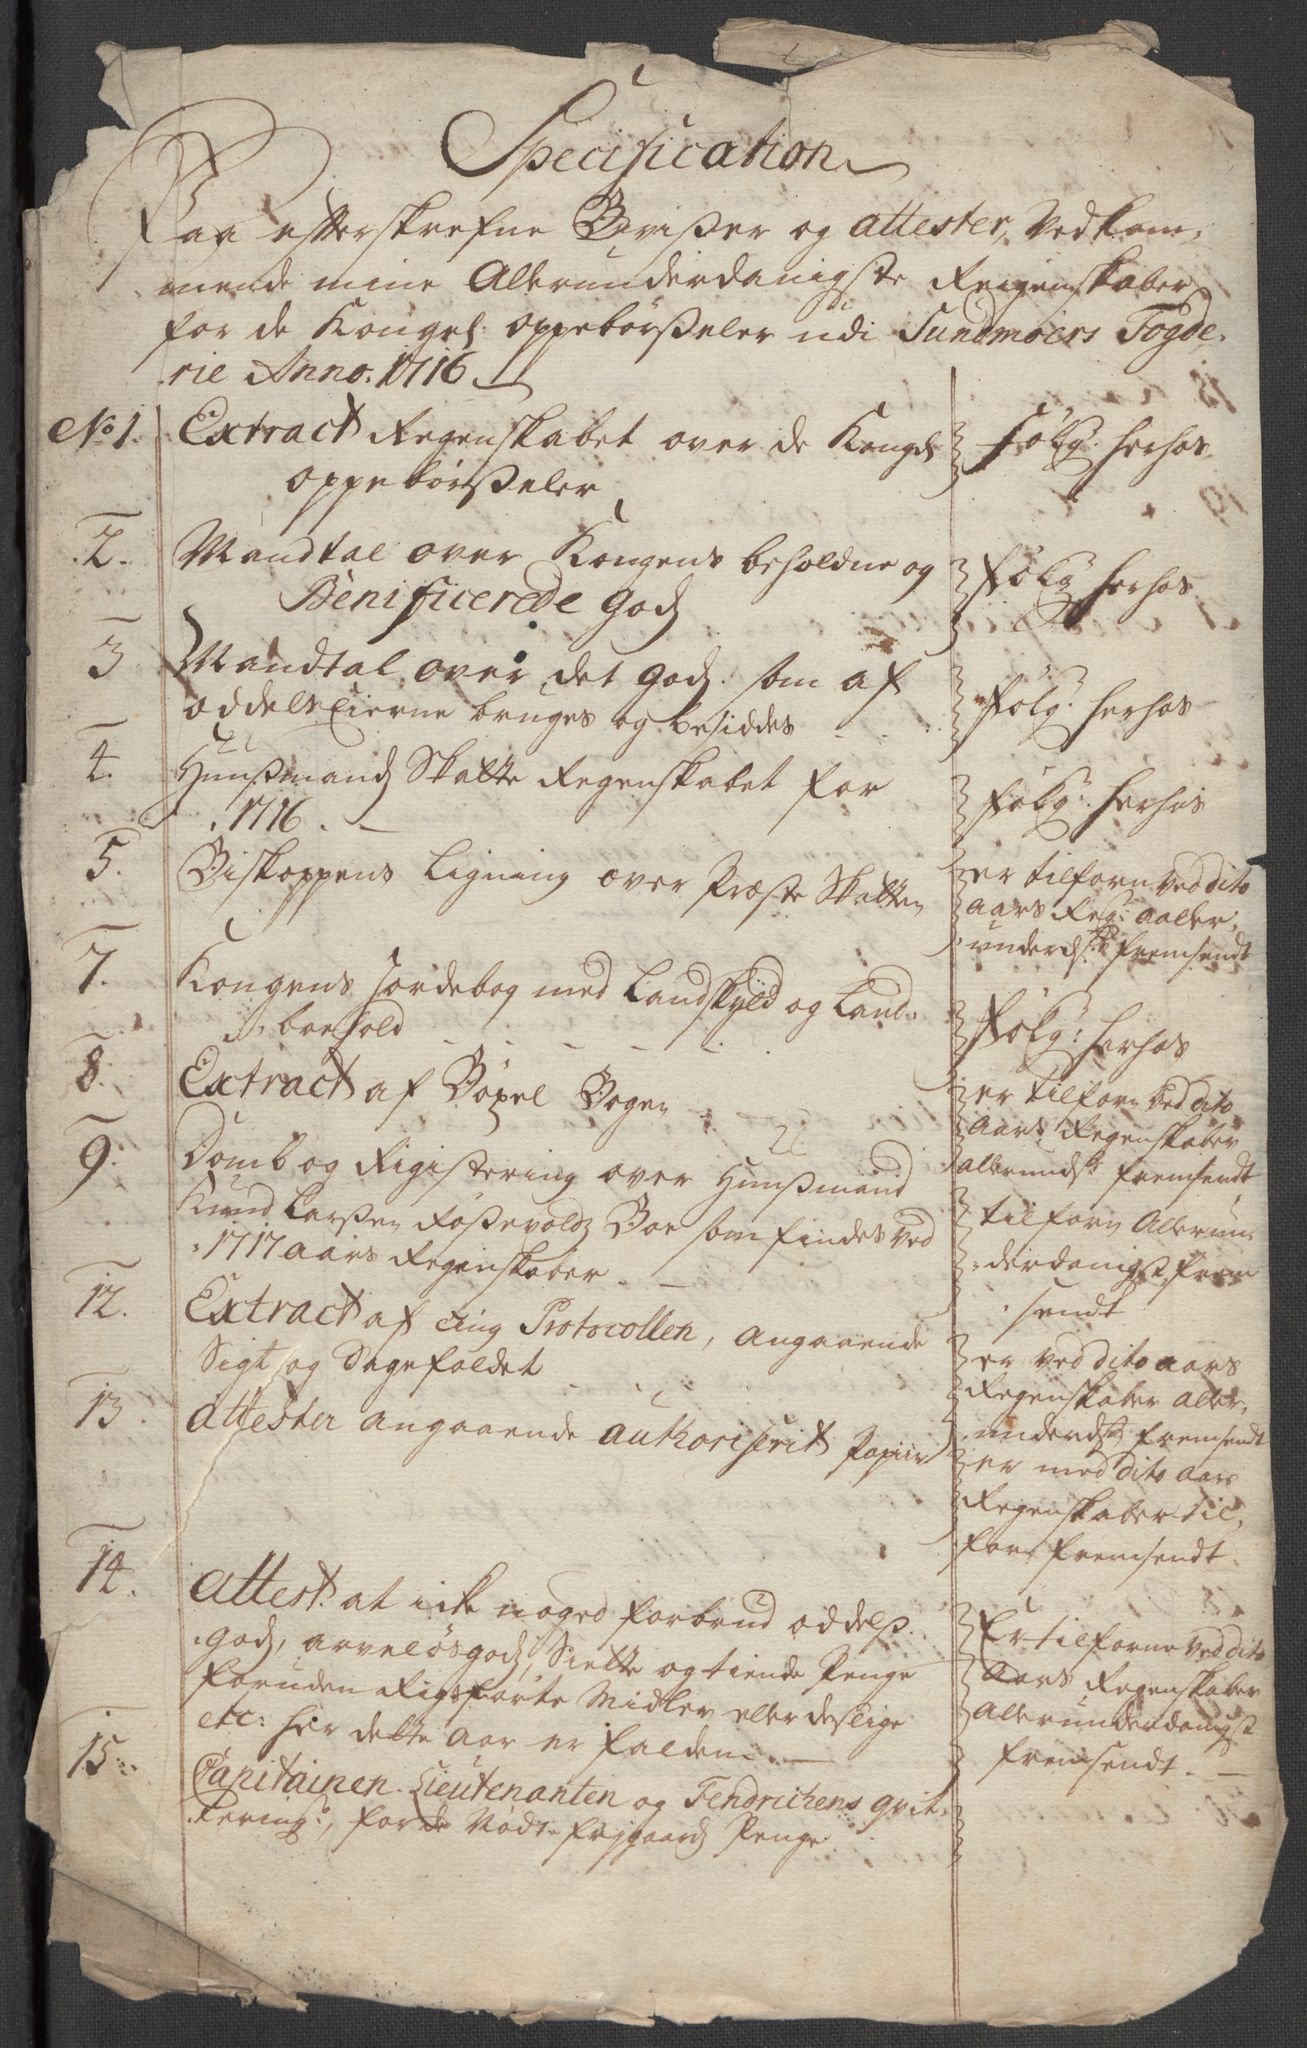 Specification
Paa efterskrefne Beviszer og attester, Vedkom,
mende mine Allerunderdanigste Reigenskaber
for de Kongel: oppebörszeler udi Sundmöers Fogde,
rie Anno. 1716
No 1. Extract Regenskabet over de Kongel: följ: herhos
oppebörszeler
2. Mandtal over Kongens beholdne og följ: herhos
Benificerede Godz
3 Mandtal over det Godz som af
oddels Eierne bruges og besiddes följ: herhos
4. Huuszmandz Skatte Regenskabet for
1716. följ: herhos
5. Biskoppens Ligning over Præste Skatten er tilforn ved dito
aars Reg: aller,
underd: fremsendt
7. Kongens Jordebog med Landskyld og Land,
boehold följ: herhos
8. Extract af Böxel Bogen er tilforn ved dito
aars Regenskaber
allerunds: fremsendt
9. Domb og Rigistering over Huuszmand
Knud Larszen Boe som findes ved
1717 aars Regenskaber
tilforn Allerun,
derdanigst frem
sendt
12. Extract af ting Protocollen, angaaende
Sigt og Sagefaldet
er ved dito aars
Regenskaber aller,
underdst fremsendt
13. attester angaaende authoriserit Papiir
er med dito aars
Regenskaber til,
forn fremsendt
14. attest: at icke noged forbrud oddelsz
godz, arvelösgodz, Siette og tiende Penge
foruden Rigsförte Midler eller deslige
etc: her dette Aar er falden
Er tilforne ved dito
Aars Regenskaber
Allerunderdanigst
fremsendt.
15. Capitainen. Lieutenanten og Fendrichens qvit,
tering:, for de Penge